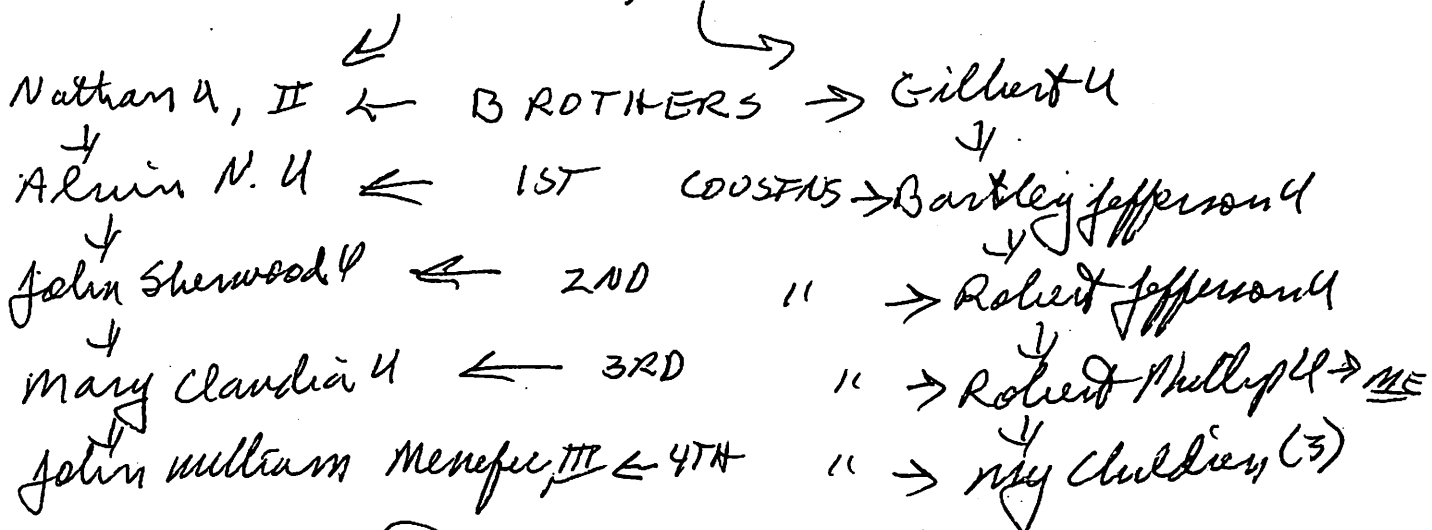 Nathan U, II ← BROTHERS → Gilbert U
Alvin N. U ← 1ST COUSINS → Bartley Jefferson U
John Sherwood U ← 2ND " → Robert Jefferson U
Mary Claudia U ← 3RD " → Robert Phillip U → ME
John William Menefee, III ← 4TH " → my children (3)